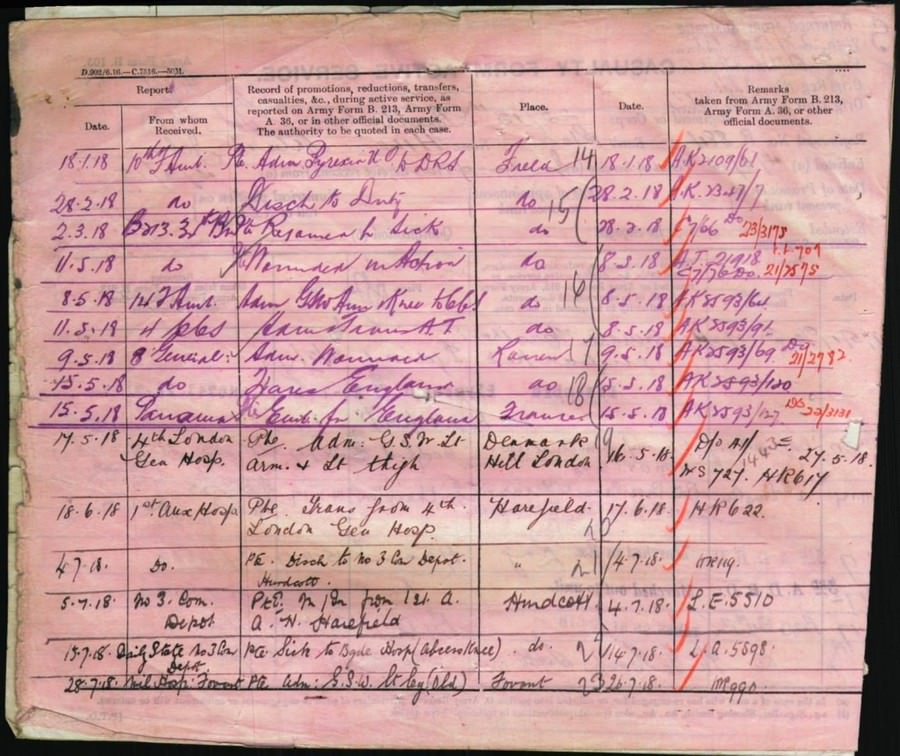 D.902/6.16.—C.7516.—50M.
Report
Record of promotions, reductions, transfers,
casualties, &c., during active service, as
reported on Army Form B. 213, Army Form
A. 36, or in other official documents.
The authority to be quoted in each case.
Place.
Date.
Remarks
taken from Army Form B. 213,
Army Form A. 36, or other
official documents.
Date.
From whom
Received.
18.1.18 10th F Amb. Pte. Adm Pyrexia to DRS Field 14 18.1.18 AK2109/61
28.2.18 do Disch to Duty do 15 28.2.18 A.K. 2347/7
2.3.18 B213. Pte Rejoined fr Sick do 28.2.18 C7/66 Do 23/3175
11.5.18 do Wounded in Action do 8.5.18 A.T. 21918
C7/76 Do. 21/2575
8.5.18 14 F Amb. Adm GSW Arm & Knee to CCS do 16 8.5.18 AK2593/64
11.5.18 do 8.5.18 AK2593/91
9.5.18 8 General Adm. Wounded Rouen 17 9.5.18 AK2593/69 DO 21/2782
15.5.18 do England do 18 15.5.18 AK2593/120
15.5.18 Panama Emb. for England 15.5.18 AK2593/127 DO 22/3131
17.5.18 4th London Pte. Adm: G.S.W. Lt Denmark 19 16.5.18
Gen Hosp. arm. & Lt thigh Hill London 27.5.18.
WS 727. HR617
18.6.18 1st Aux Hosp Pte Trans from 4th Harefield. 17.6.18 HR622
London Gen Hosp. 20
4.7.18. Do. Pte. Disch to No 3 Con Depot. " 21 4.7.18.
Hurdcott.
5.7.18. No 3. Com. Pte. M/In from 1st A. Hurdcott 4.7.18. L.E.5510
Depot A. H. Harefield
15.7.18. Daily State No3 Com Pte Sick to Hosp (Abscess Knee) do. 14.7.18. L.a.5898.
Depot.
28.7.18. Mil Hosp: Fovant Pte Adm: G.S.W. Lt leg (old) Fovant 23 26.7.18.